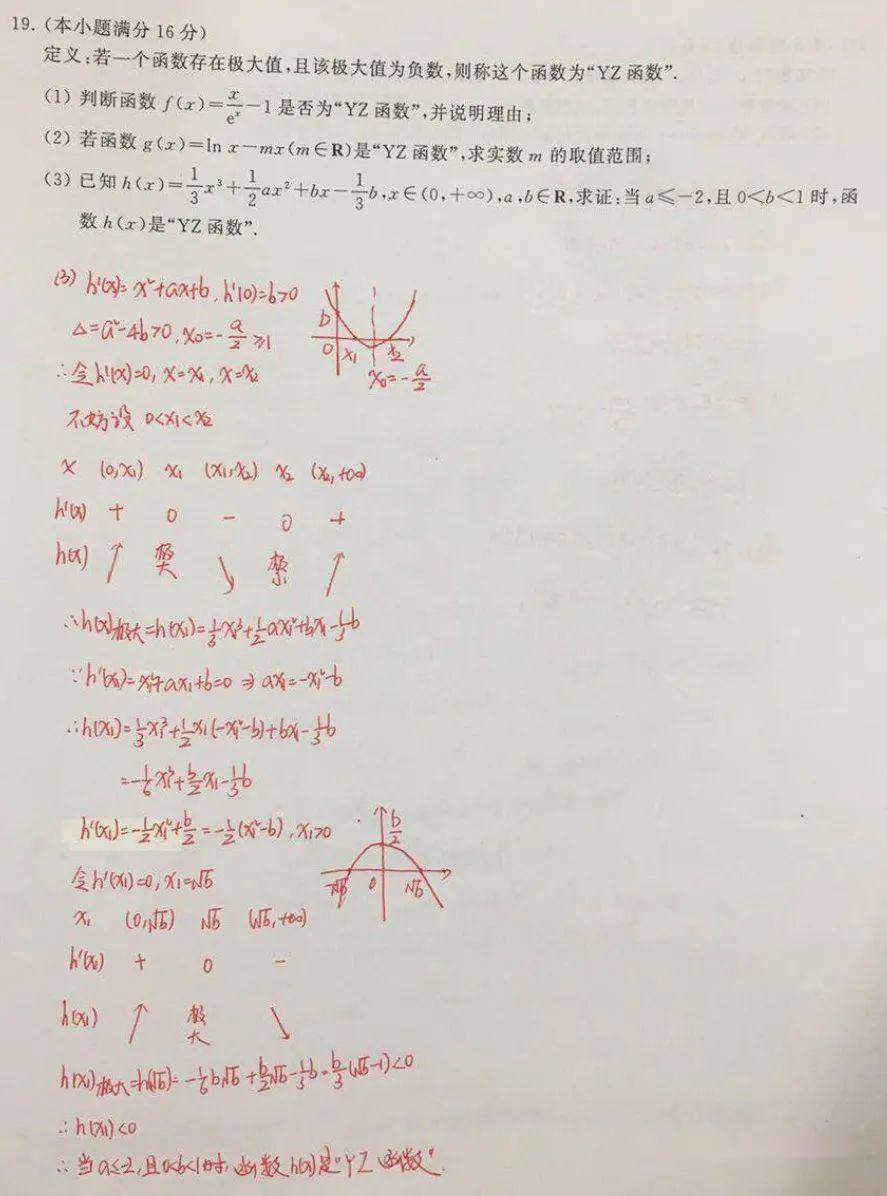 19.(本小题满分16分)
定义:若一个函数存在极大值,且该极大值为负数,则称这个函数为“YZ函数”.
(1) 判断函数 f(x)=x/eˣ-1 是否为“YZ函数”,并说明理由;
(2) 若函数 g(x)=ln x-mx(m∈R)是“YZ函数”,求实数 m 的取值范围;
(3) 已知 h(x)=1/3x³+1/2ax²+bx-1/3b,x∈(0,+∞),a,b∈R,求证:当 a≤-2,且 0<b<1 时,函
数 h(x)是“YZ函数”.
(3) h'(x)=x²+ax+b, h'(0)=b>0
Δ=a²-4b>0, x₀=-a/2≥1
b O x₁ x₂
x₀=-a/2
∴令h'(x)=0, x=x₁, x=x₂
不妨设 0<x₁<x₂
x (0,x₁) x₁ (x₁,x₂) x₂ (x₂,+∞)
h'(x) + 0 - 0 +
h(x) ↑ 极大 ↘ 极小 ↑
∴h(x)极大=h(x₁)=1/3x₁³+1/2ax₁²+bx₁-1/3b
∵h'(x₁)=x₁²+ax₁+b=0 ⇒ ax₁=-x₁²-b
∴h(x₁)=1/3x₁³+1/2x₁(-x₁²-b)+bx₁-1/3b
=-1/6x₁³+b/2x₁-1/3b
h'(x₁)=-1/2x₁²+b/2=-1/2(x₁²-b), x₁>0
b/2
-√b 0 √b
令h'(x₁)=0, x₁=√b
x₁ (0,√b) √b (√b,+∞)
h'(x₁) + 0 -
h(x₁) ↑ 极大 ↘
h(x₁)极大=h(√b)=-1/6b√b+b/2√b-1/3b=b/3(√b-1)<0
∴h(x₁)<0
∴当a≤-2,且0<b<1时,函数h(x)是“YZ函数”.